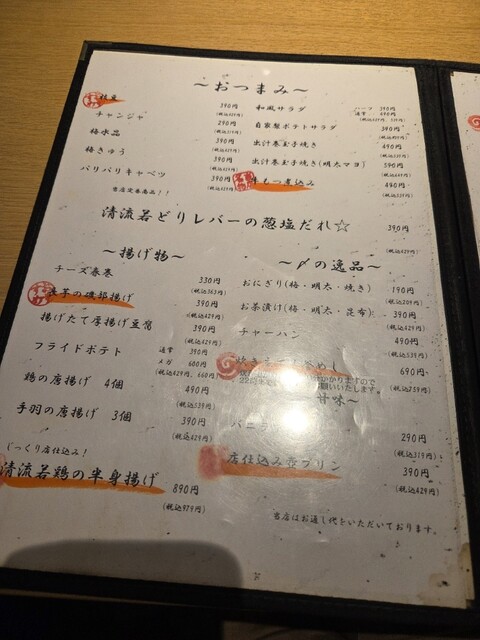 ～おつまみ～
枝豆 390円
(税込429円)
チャンジャ 290円
(税込319円)
梅水晶 390円
(税込429円)
梅きゅう 390円
(税込429円)
バリバリキャベツ 390円
(税込429円)
当店定番商品！！
和風サラダ ハーフ 390円
通常 490円
(税込429円、539円)
自家製ポテトサラダ 390円
(税込429円)
出汁巻き玉子焼き 490円
(税込539円)
出汁巻き玉子焼き(明太マヨ) 590円
(税込649円)
牛もつ煮込み 490円
清流若どりレバーの葱塩だれ☆ 390円
(税込429円)
～揚げ物～
チーズ春巻 330円
(税込363円)
芋の磯部揚げ 390円
(税込429円)
揚げたて厚揚げ豆腐 390円
(税込429円)
フライドポテト 通常 390円
メガ 600円
(税込429円、660円)
鶏の唐揚げ 4個 490円
(税込539円)
手羽の唐揚げ 3個 390円
(税込429円)
じっくり店仕込み！
清流若鶏の半身揚げ 890円
(税込979円)
～〆の逸品～
おにぎり(梅・明太・焼き) 190円
(税込209円)
お茶漬け(梅・明太・昆布) 390円
(税込429円)
チャーハン 490円
(税込539円)
めし 690円
(税込759円)
かかり上げので
願いいたします。
甘味～
バニラ 290円
(税込319円)
店仕込み壺プリン 390円
(税込429円)
当店はお通し代をいただいております。